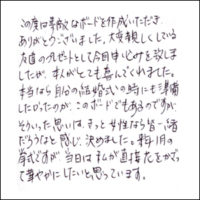 この度は素敵なボードを作成いただき
ありがとうございました。大変親しくしている
友達のプレゼントとして今回申し込みを致しま
したが、本人がとても喜んでくれました。
本当なら自分の結婚式の時にも準備
したかったのが、このボードでもあるのですが
そういった思いは、きっと女性なら皆一緒
だろうなと感じ、決めました。来月の
挙式ですが、当日は私が直接たをかざっ
て華やかにしたいと思っています。